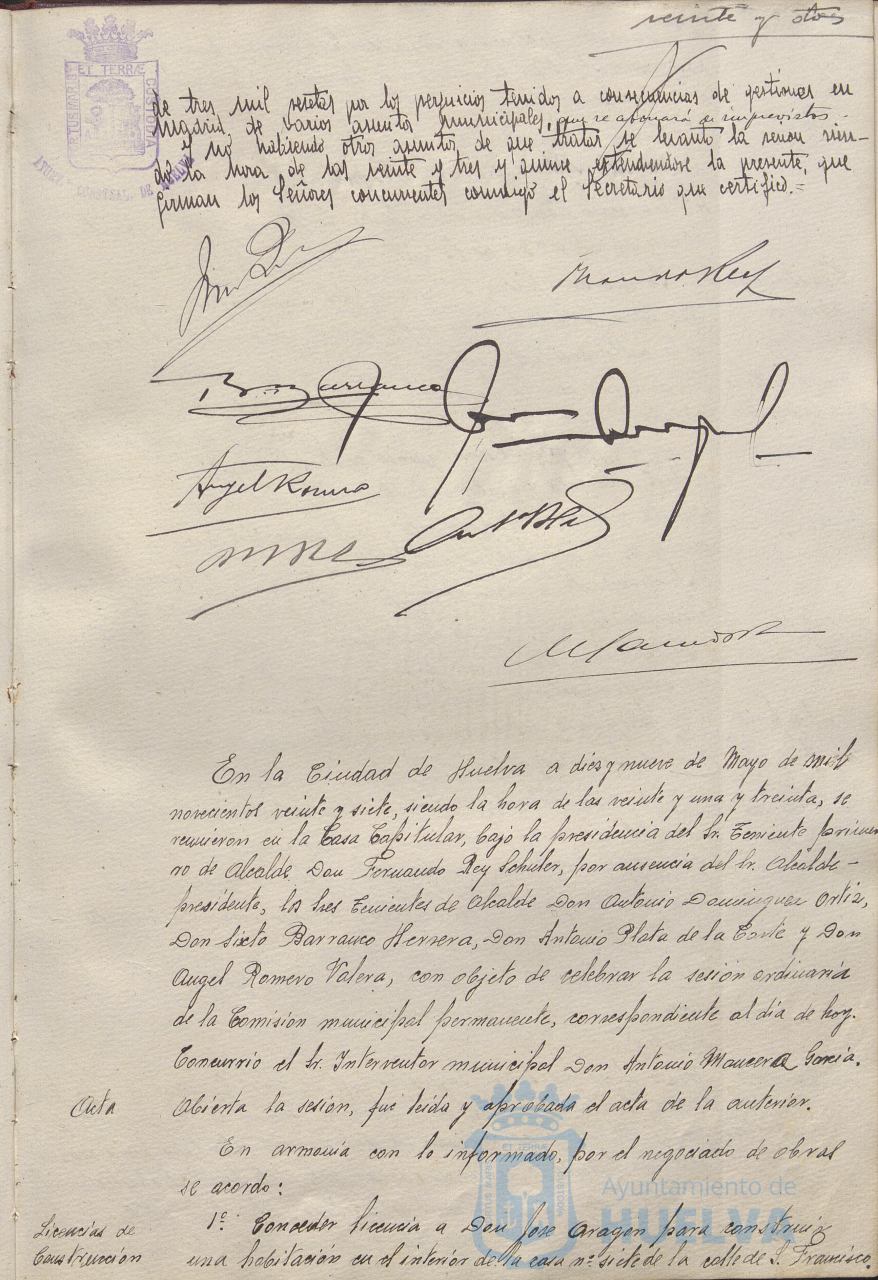 veinte y dos
ET TERRÆ
CUSTODIA
de tres mil pesetas por los perjuicios tenidos a consecuencias de gestiones en
Madrid, de varios asuntos municipales, que se abonará de imprevistos.-
Y no habiendo otros asuntos de que tratar se levantó la sesion sien-
do la hora de las veinte y tres y quince extendiendose la presente, que
firman los Señores concurrentes conmigo el Secretario que certifico.=
Angel Romero
En la Ciudad de Huelva a diez y nueve de Mayo de mil
novecientos veinte y siete, siendo la hora de las veinte y una y treinta, se
reunieron en la Casa Capitular, bajo la presidencia del Sr. Teniente prime-
ro de Alcalde, Don Fernando Rey Schuler, por ausencia del Sr. Alcalde-
presidente, los tres Tenientes de Alcalde Don Antonio Dominguez Ortiz,
Don Sixto Barranco Herrera, Don Antonio Plata de la Corte y Don
Angel Romero Valera, con objeto de celebrar la sesión ordinaria
de la Comisión municipal permanente, correspondiente al día de hoy.
Concurrió el Sr. Interventor municipal Don Antonio Mancera García.
Acta
Abierta la sesión, fué leida y aprobada el acta de la anterior.
En armonía con lo informado, por el negociado de obras
se acordo:
Licencias de
Construcción
1º. Conceder licencia a Don José Aragón para construir
una habitación en el interior de la casa nº. siete de la calle de S. Francisco.
Ayuntamiento de
HUELVA